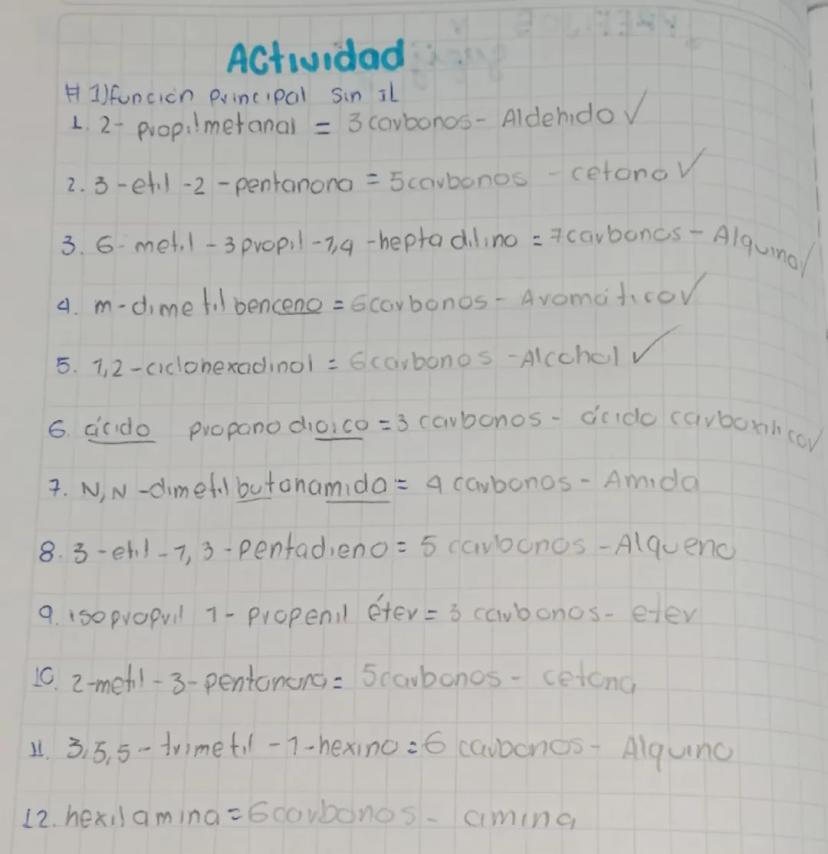 Actividad
# 1) función principal sin il
1. 2- propilmetanal = 3 carbonos - Aldehido ✓
2. 3-etil-2-pentanona = 5 carbonos - cetona ✓
3. 6-metil-3propil-1,4-heptadiino = 7 carbonos - Alquino ✓
4. m-dimetilbenceno = 6 carbonos - Aromático ✓
5. 1,2-ciclohexadinol = 6 carbonos - Alcohol ✓
6. ácido propanodioico = 3 carbonos - ácido carboxilico ✓
7. N,N-dimetilbutanamida = 4 carbonos - Amida
8. 3-etil-1,3-pentadieno = 5 carbonos - Alqueno
9. isopropil 1-propenil éter = 3 carbonos - eter
10. 2-metil-3-pentanona = 5 carbonos - cetona
11. 3,5,5-trimetil-1-hexino = 6 carbonos - Alquino
12. hexilamina = 6 carbonos - amina